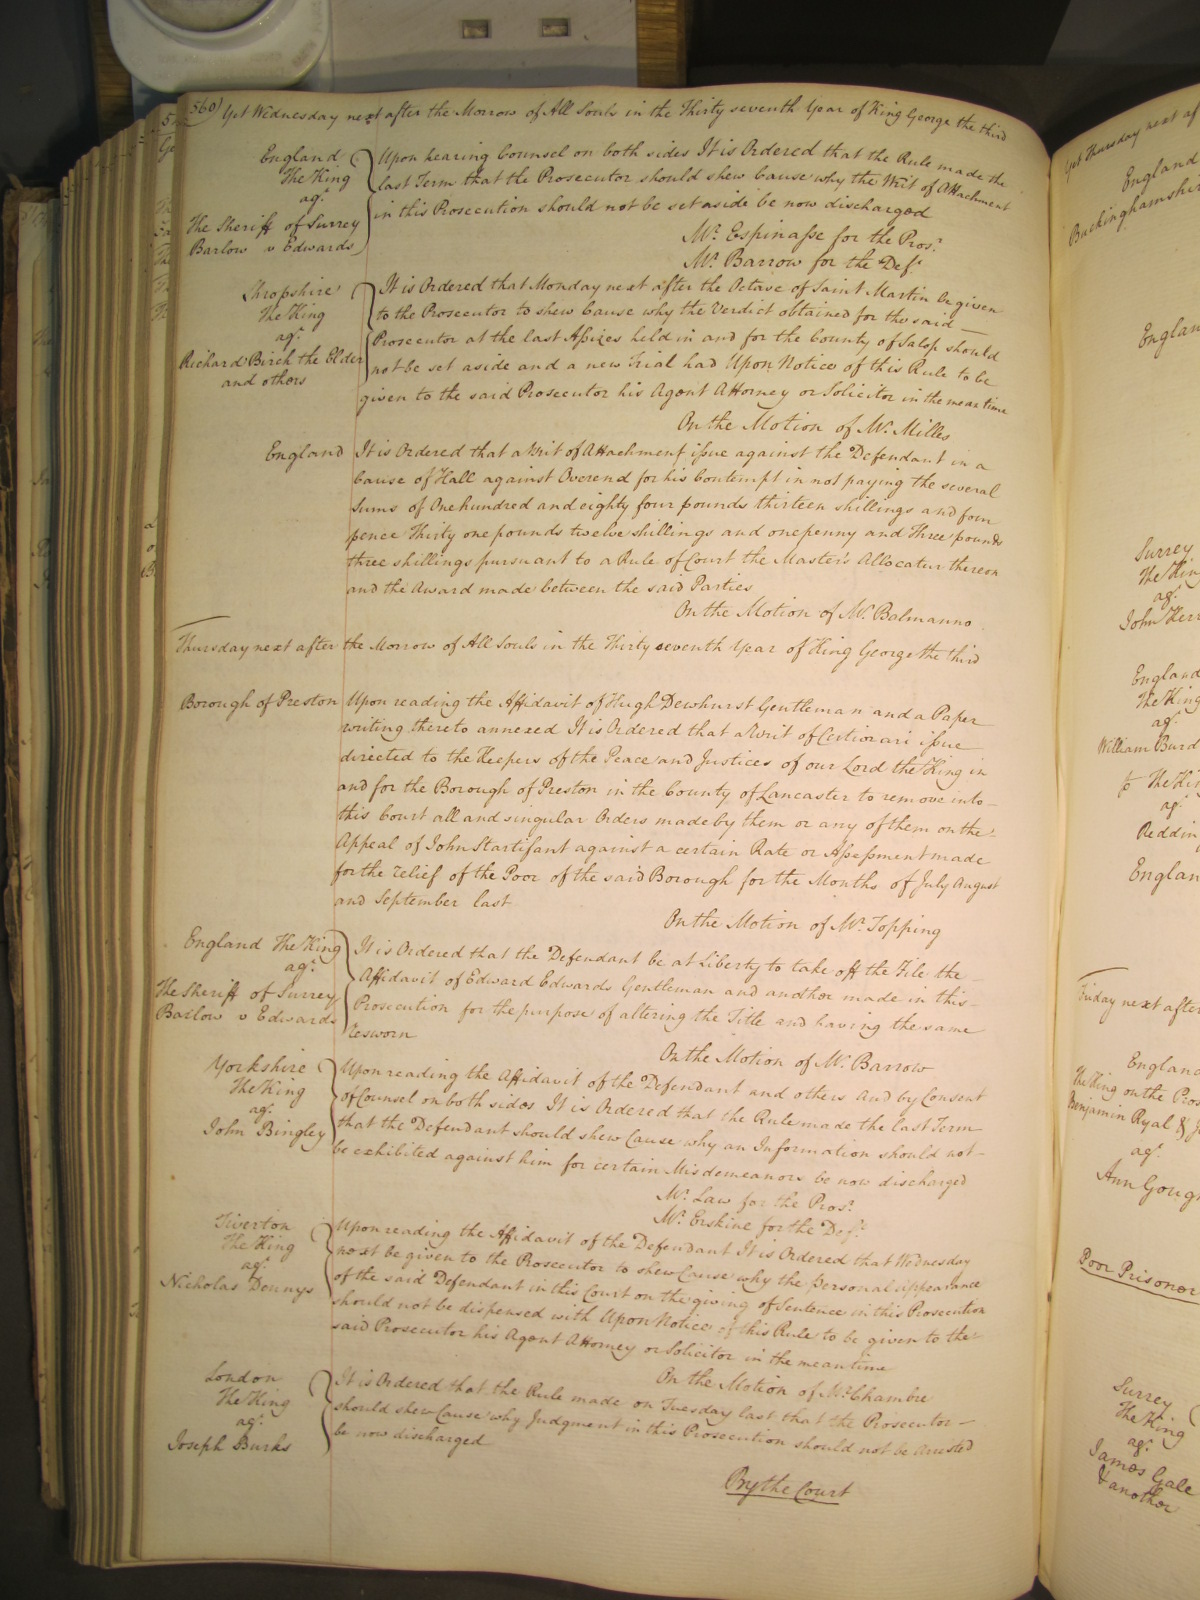 560) Yet Wednesday next after the Morrow of All Souls in the Thirty seventh Year of King George the third
England
The King
agt.
The Sheriff of Surrey
Barlow v Edwards
Upon hearing Counsel on both sides It is Ordered that the Rule made the
last Term that the Prosecutor should shew Cause why the Writ of Attachment
in this Prosecution should not be set aside be now discharged
Mr. Espinasse for the Pros.
Mr. Barrow for the Def.
Shropshire
The King
agt.
Richard Birch the Elder
and others
It is Ordered that Monday next after the Octave of Saint Martin be given
to the Prosecutor to shew Cause why the Verdict obtained for the said
Prosecutor at the last Assizes held in and for the County of Salop should
not be set aside and a new Trial had Upon Notice of this Rule to be
given to the said Prosecutor his Agent Attorney or Solicitor in the mean time
On the Motion of Mr. Milles
England
It is Ordered that a Writ of Attachment issue against the Defendant in a
Cause of Hall against Overend for his Contempt in not paying the several
Sums of One hundred and eighty four pounds thirteen shillings and four
pence Thirty one pounds twelve shillings and one penny and Three pounds
three shillings pursuant to a Rule of Court the Master's Allocatur thereon
and the Award made between the said Parties
On the Motion of Mr. Balmanno
Thursday next after the Morrow of All Souls in the Thirty seventh Year of King George the third
Borough of Preston
Upon reading the Affidavit of Hugh Dewhurst Gentleman and a Paper
writing thereto annexed It is Ordered that a Writ of Certiorari issue
directed to the Keepers of the Peace and Justices of our Lord the King in
and for the Borough of Preston in the County of Lancaster to remove into
this Court all and singular Orders made by them or any of them on the
Appeal of John Startifant against a certain Rate or Assessment made
for the relief of the Poor of the said Borough for the Months of July August
and September last
On the Motion of Mr. Topping
England The King
agt.
The Sheriff of Surrey
Barlow v Edwards
It is Ordered that the Defendant be at Liberty to take off the File the
Affidavit of Edward Edwards Gentleman and another made in this
Prosecution for the purpose of altering the Title and having the same
resworn
On the Motion of Mr. Barrow
Yorkshire
The King
agt.
John Bingley
Upon reading the Affidavit of the Defendant and others and by Consent
of Counsel on both sides It is Ordered that the Rule made the last Term
that the Defendant should shew Cause why an Information should not
be exhibited against him for certain Misdemeanors be now discharged
Mr. Law for the Pros.
Mr. Erskine for the Def.
Tiverton
The King
agt.
Nicholas Dennys
Upon reading the Affidavit of the Defendant It is Ordered that Wednesday
next be given to the Prosecutor to shew Cause why the personal appearance
of the said Defendant in this Court on the giving of Sentence in this Prosecution
should not be dispensed with Upon Notice of this Rule to be given to the
said Prosecutor his Agent Attorney or Solicitor in the mean time
On the Motion of Mr. Chambre
London
The King
agt.
Joseph Burks
It is Ordered that the Rule made on Tuesday last that the Prosecutor
should shew Cause why Judgment in this Prosecution should not be arrested
be now discharged
By the Court
Yet Thursday next af
England
Buckinghamshir
Englan
Surrey
The King
agt.
John Kerr
England
The King
agt.
William Burd
The Kin
agt.
Reddin
Englan
Friday next after
England
The King on the Pros
Benjamin Ryal & J
agt.
Ann Gough
Poor Prisoner
Surrey
The King
agt.
James Gale
& another